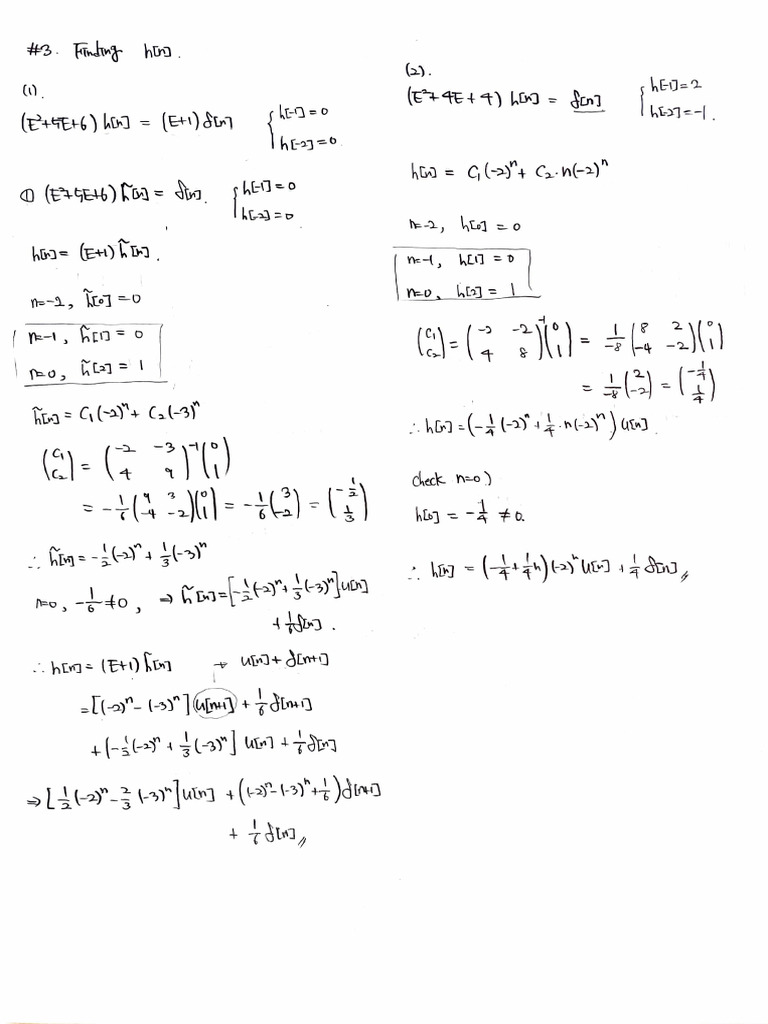 #3. Finding h[n].
(1).
(E²+5E+6) h[n] = (E+1) δ[n] { h[-1]=0
h[-2]=0.
① (E²+5E+6) h̃[n] = δ[n]. { h[-1]=0
h[-2]=0
h[n] = (E+1) h̃[n].
n=-2, h̃[0]=0
n=-1, h̃[1]=0
n=0, h̃[2]=1
h̃[n] = C₁(-2)ⁿ + C₂(-3)ⁿ
(C₁ C₂) = (-2 -3 4 9)⁻¹ (0 1)
= -1/6 (9 3 -4 -2)(0 1) = -1/6 (3 -2) = (-1/2 1/3)
∴ h̃[n] = -1/2(-2)ⁿ + 1/3(-3)ⁿ
n=0, -1/6 ≠ 0, ⇒ h̃[n] = [-1/2(-2)ⁿ + 1/3(-3)ⁿ]u[n]
+ 1/6 δ[n].
∴ h[n] = (E+1) h̃[n] → u[n] + δ[n+1]
= [(-2)ⁿ - (-3)ⁿ] u[n+1] + 1/6 δ[n+1]
+ [-1/2(-2)ⁿ + 1/3(-3)ⁿ] u[n] + 1/6 δ[n]
⇒ [1/2(-2)ⁿ - 2/3(-3)ⁿ]u[n] + ((-2)ⁿ - (-3)ⁿ + 1/6)δ[n+1]
+ 1/6 δ[n] //
(2).
(E²+4E+4) h[n] = δ[n] { h[-1]=2
h[-2]=-1.
h[n] = C₁(-2)ⁿ + C₂·n(-2)ⁿ
n=-2, h[0]=0
n=-1, h[1]=0
n=0, h[2]=1
(C₁ C₂) = (-2 -2 4 8)⁻¹ (0 1) = 1/-8 (8 2 -4 -2)(0 1)
= 1/-8 (2 -2) = (-1/4 1/4)
∴ h[n] = (-1/4(-2)ⁿ + 1/4·n(-2)ⁿ) u[n].
check n=0)
h[0] = -1/4 ≠ 0.
∴ h[n] = (-1/4 + 1/4n)(-2)ⁿ u[n] + 1/4 δ[n] //